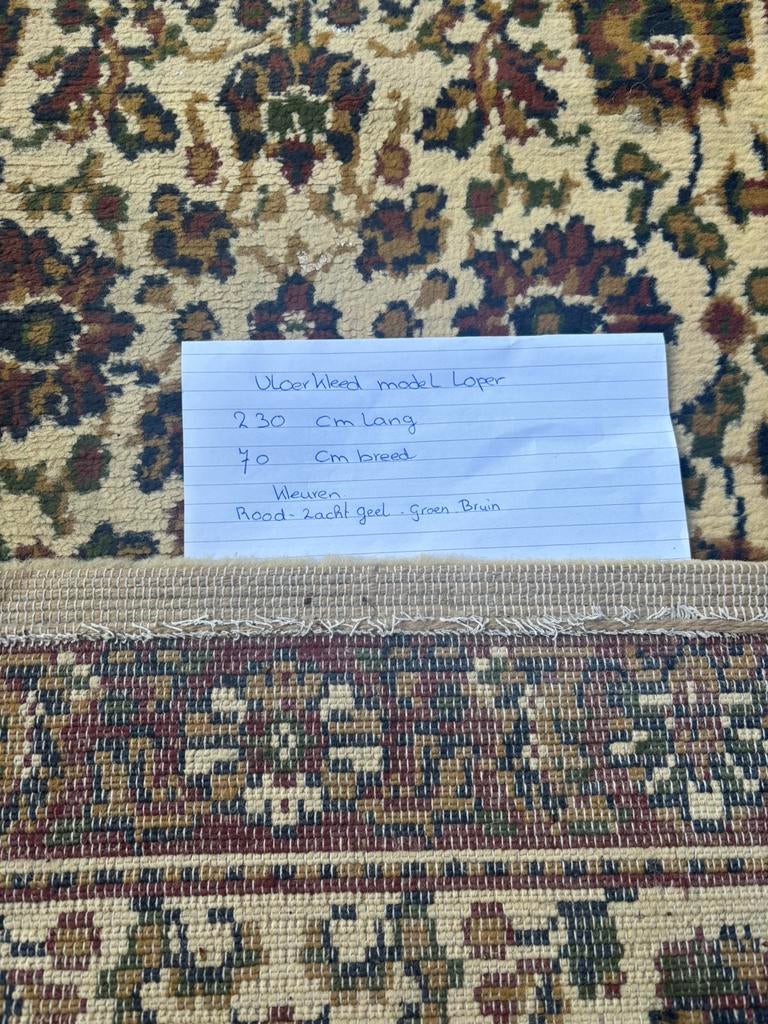 Vloerkleed model Loper
230 cm lang
70 cm breed
kleuren
Rood - Zacht geel - Groen Bruin